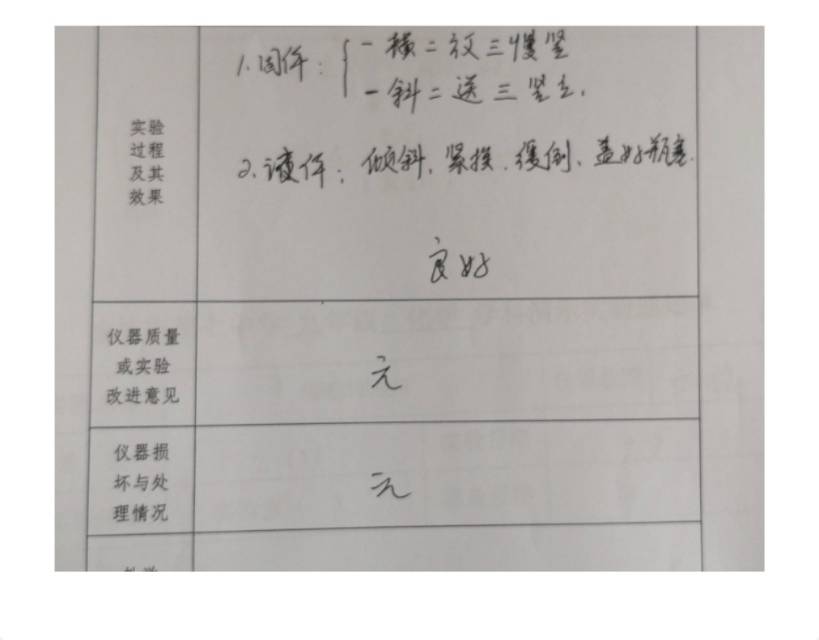 实验
过程
及其
效果
1.固体：
一横二放三慢竖
一斜二送三竖立.
2.液体：倾斜、紧挨、缓倒、盖好瓶塞.
良好
仪器质量
或实验
改进意见
无
仪器损
坏与处
理情况
无